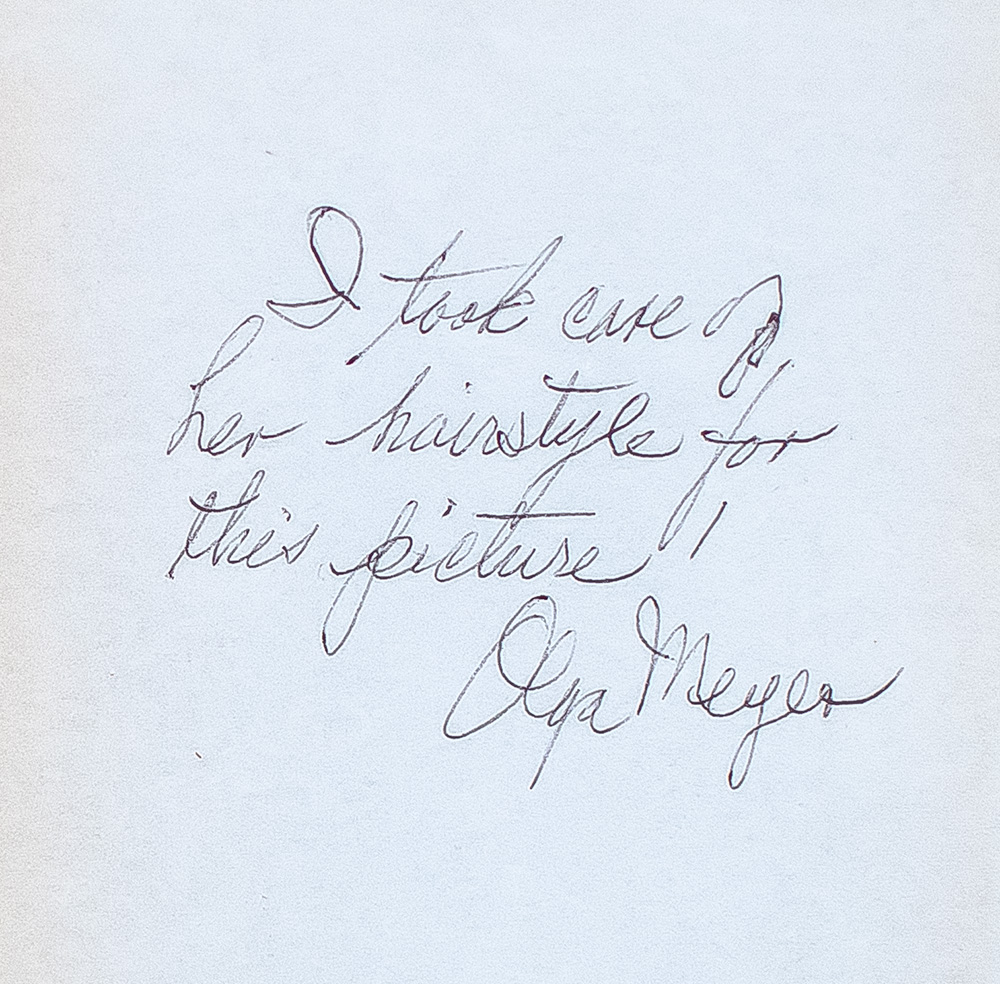 I took care of
her hairstyle for
this picture!
Olga Meyer